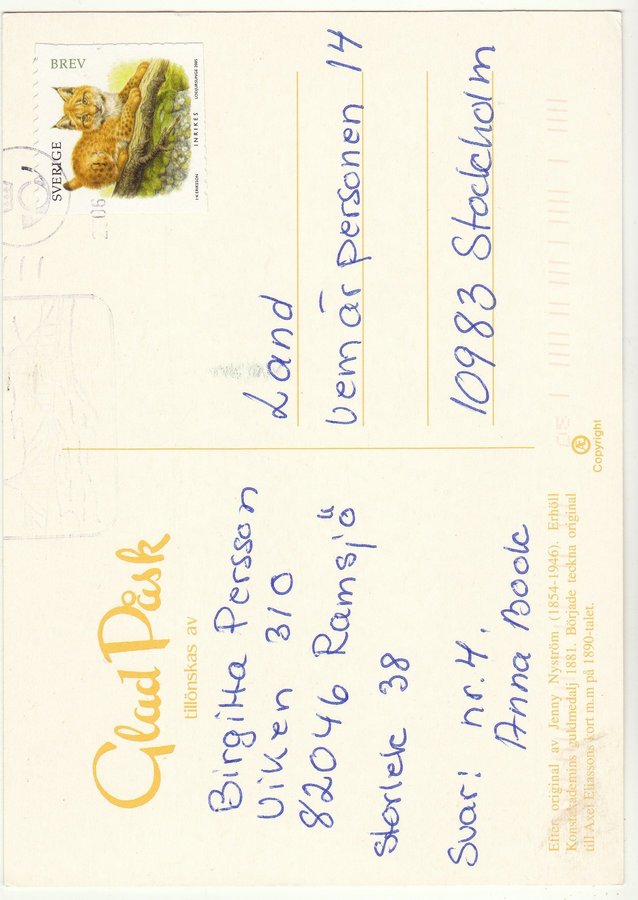 Glad Påsk
tillönskas av
Birgitta Persson
Viken 310
82046 Ramsjö
Storlek 38
Svar: nr. 4.
Anna Book
Efter original av Jenny Nyström (1854-1946). Erhöll
Konstakademins guldmedalj 1881. Började teckna original
till Axel Eliassons kort m.m på 1890-talet.
Copyright
BREV
SVERIGE
INRIKES
06
Land
Vem är personen 14
10983 Stockholm